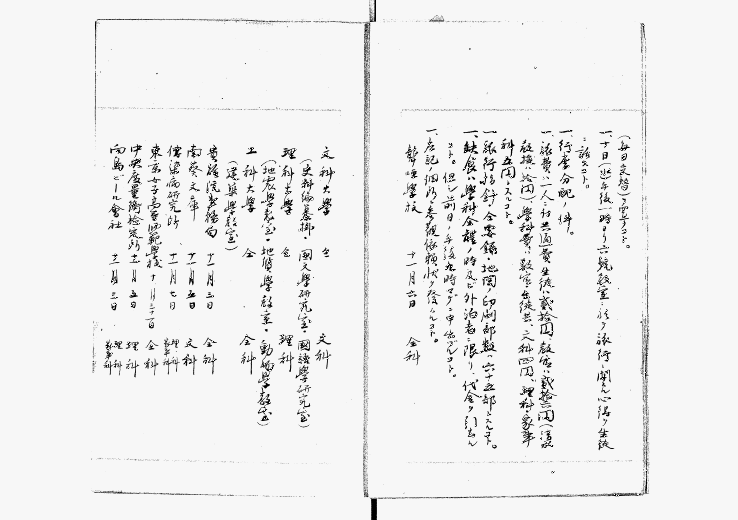 (毎日交替)ヲ定ムコト。
一、十日(火)午後一時ヨリ六號教室ニ於テ旅行ニ關スル心得ヲ生徒
ニ話スコト。
一、行李分配ノ件。
一、旅費ハ一人ニ付共通費生徒ハ貳拾圓、教官ハ貳拾六圓
教授拾圓)學科費ハ教官生徒共ニ文科四圓、理科家事
科五圓トスルコト。
一、旅行指針、念要錄、地圖ノ印刷部數ハ六十五部トスルコト。
一、缺食ハ學科全體ノ時及ビ外泊者ニ限リ、代金ヲ引去ル
コト。但シ前日ノ午後九時マデニ申出ヅルコト。
一、左記ノ個所ニ参觀依賴狀ヲ發スルコト。
聾唖學校 十一月六日 全科
文科大學 仝 文科
(史料編纂掛・國文學研究室・國語學研究室)
理科大學 仝 理科
(地震學教室・地質學教室・動物學教室)
工科大學 仝 全科
(建築學教室)
貴族院事務局 十一月三日 全科
南葵文庫 十一月五日 文科
傳染病研究所 十一月七日 理科 家事科
東京女子高等師範學校 十月三十一日 全科
中央度量衡檢定所 十一月五日 理科
向島ビール會社 十一月三日 理科 家事科